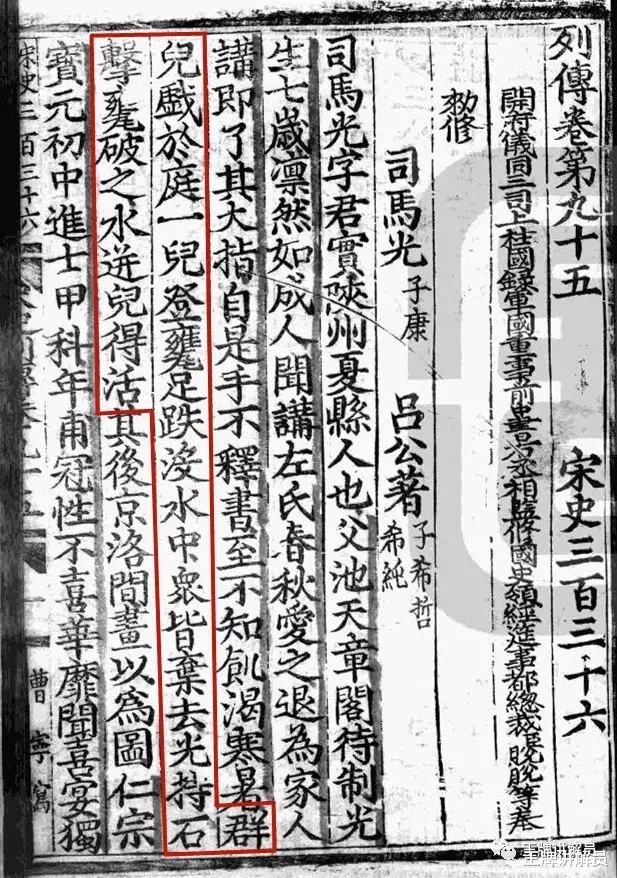 列傳卷第九十五 宋史三百三十六
開府儀同三司上柱國録軍國重事前中書右丞相監修國史領經筵事都總裁臣脫脫等奉
勑修
司馬光 子康 呂公著 子希哲 希純
司馬光字君實陝州夏縣人也父池天章閣待制光
生七歲凛然如成人聞講左氏春秋愛之退為家人
講即了其大指自是手不釋書至不知飢渴寒暑群
兒戲於庭一兒登甕足跌沒水中衆皆棄去光持石
擊甕破之水迸兒得活其後京洛間畫以為圖仁宗
寶元初中進士甲科年甫冠性不喜華靡聞喜宴獨
宋史三百三十六 曹寧寫
王牌讲解员